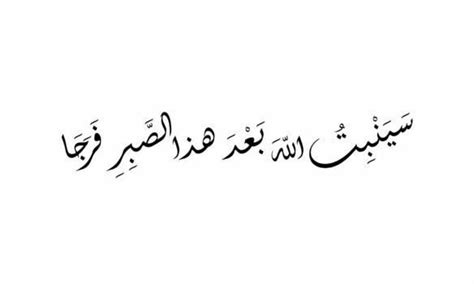 سَيَنْبِتُ اللهَ بَعْدَ هذا الصَّبِرِ فَرَجَا